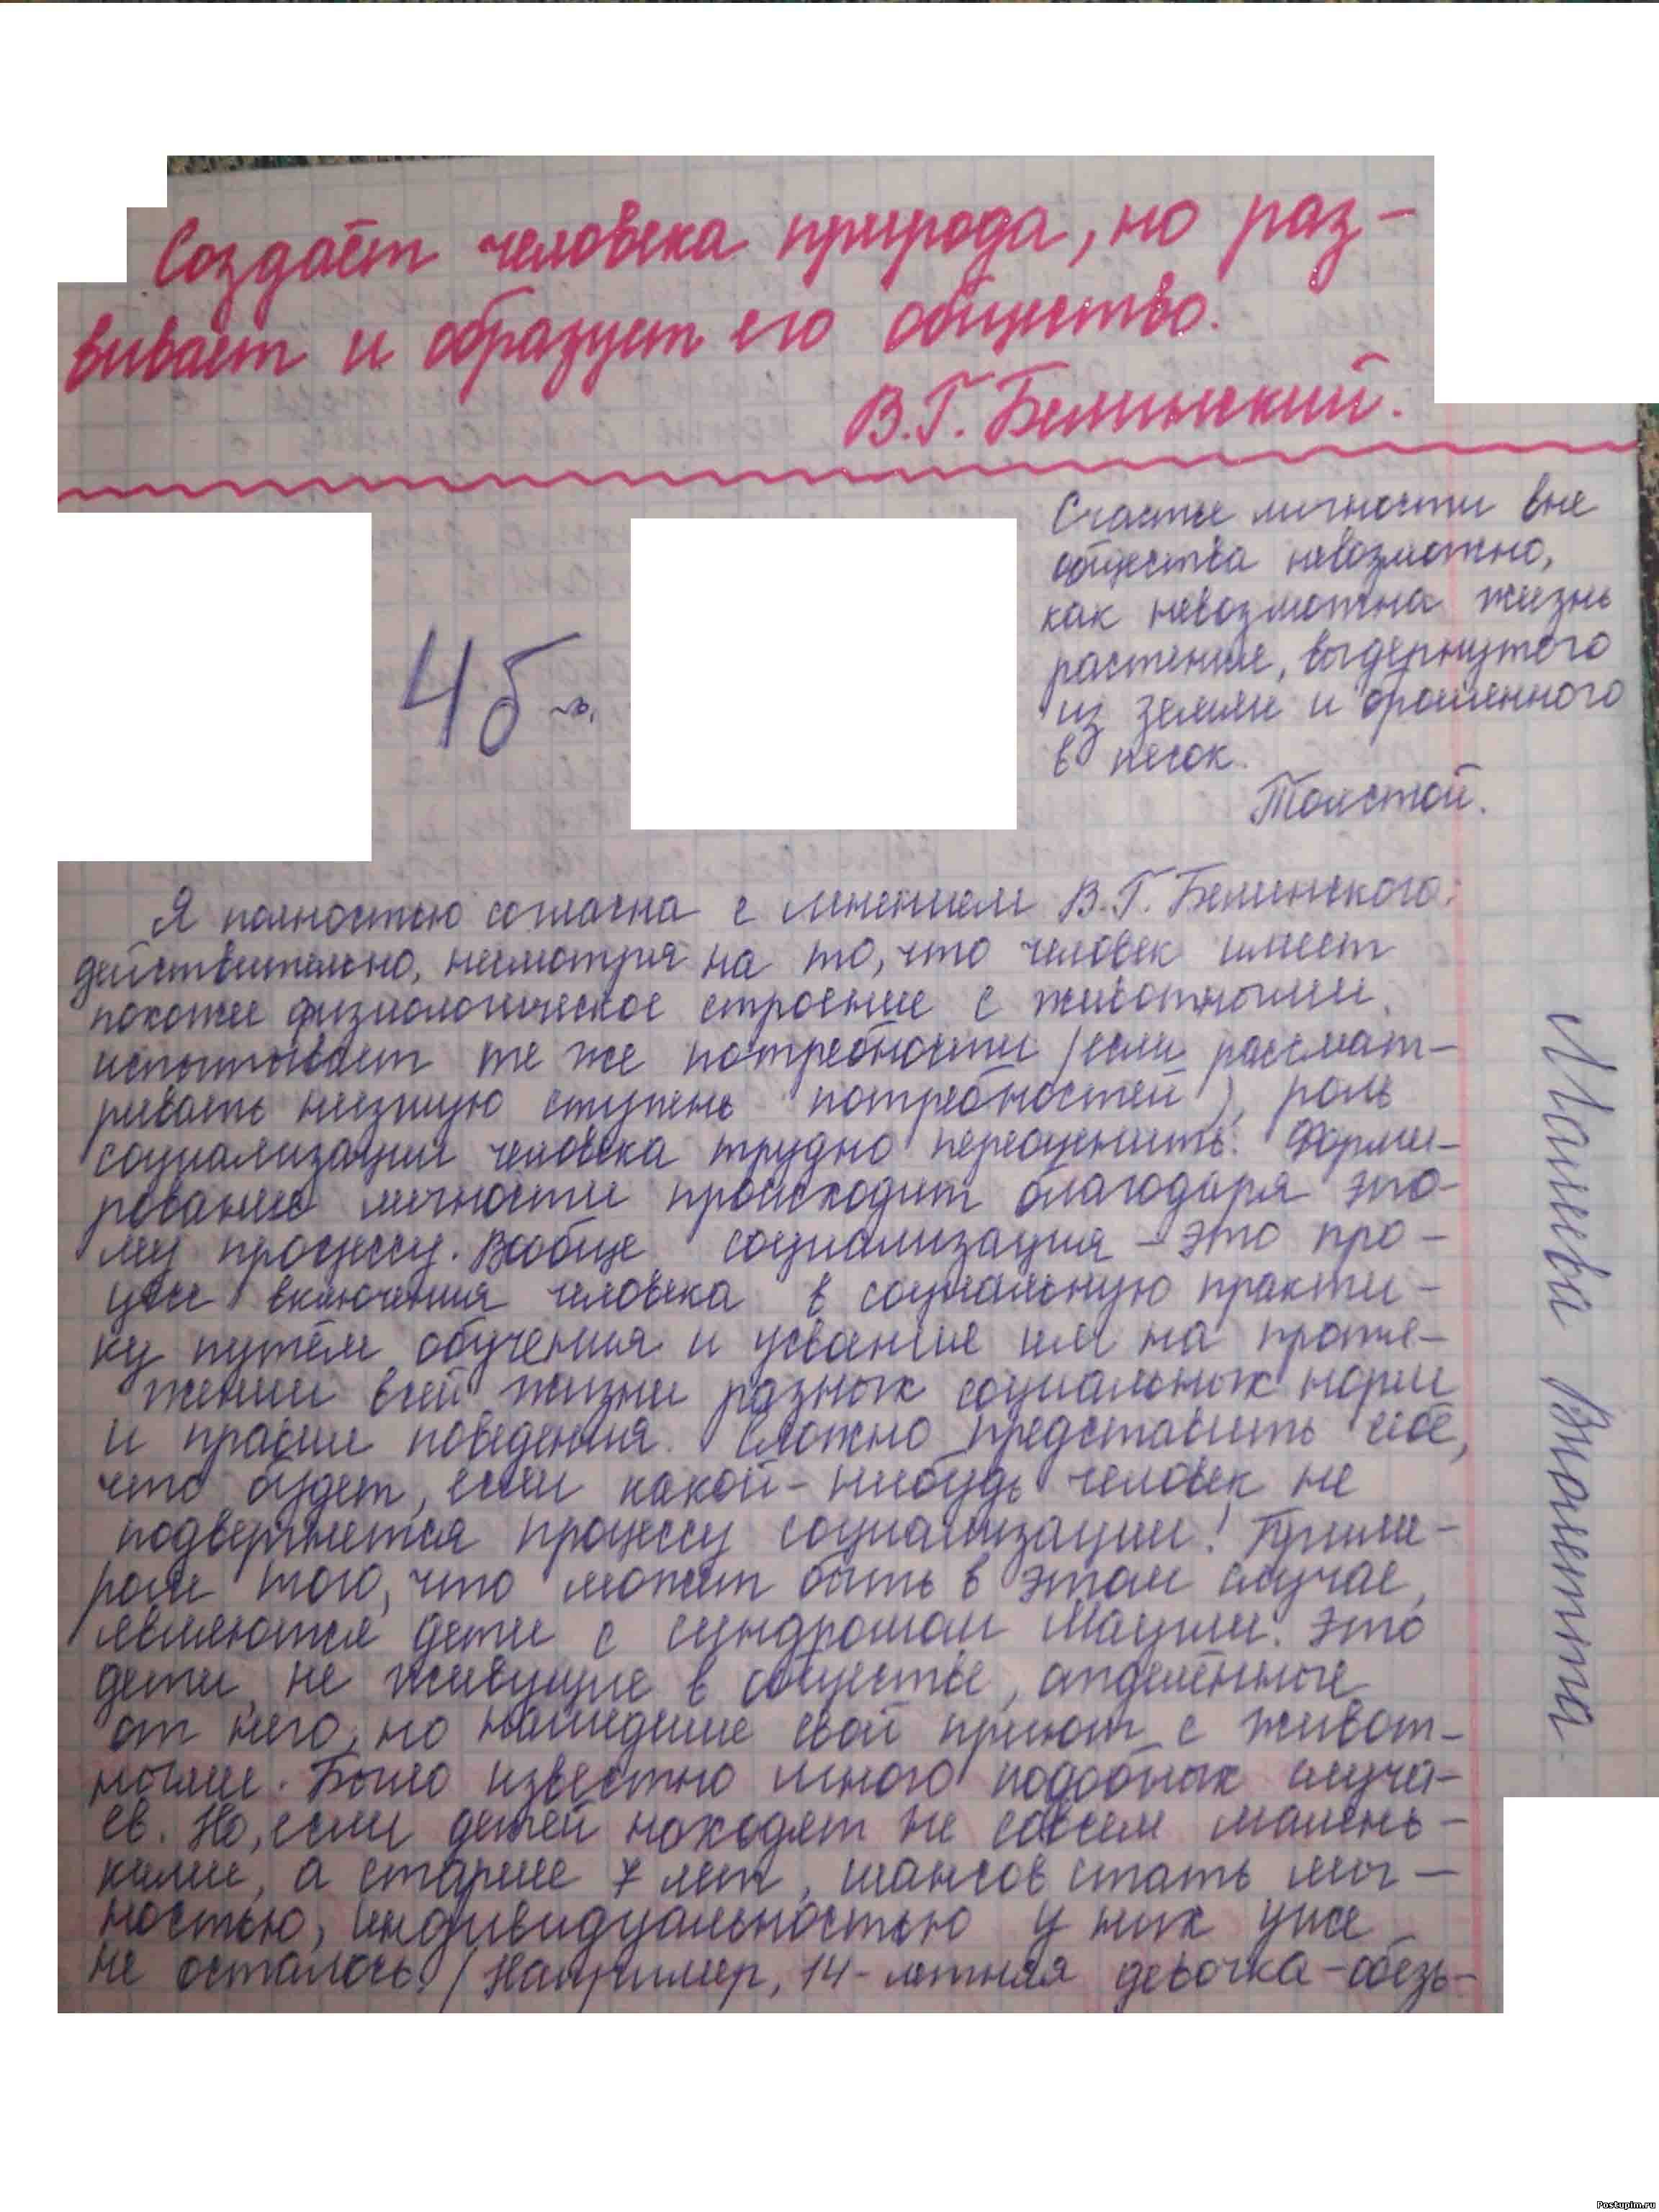 Создаёт человека природа, но раз-
вивает и образует его общество.
В.Г. Белинский.
Счастье личности вне
общества невозможно,
как невозможна жизнь
растение, выдернутого
из земли и брошенного
в песок.
Толстой.
4б
Я полностью согласна с мнением В.Г. Белинского.
действительно, несмотря на то, что человек имеет
похожее физиологическое строение с животными,
испытывает те же потребности (если рассмат-
ривать низшую ступень потребностей), роль
социализации человека трудно переоценить. Форми-
рование личности происходит благодаря это-
му процессу. Вообще социализация - это про-
цесс включения человека в социальную практи-
ку путём обучения и усвоение им на протя-
жении всей жизни разных социальных норм
и правил поведения. Сложно представить себе,
что будет, если какой-нибудь человек не
подвергнется процессу социализации! Приме-
ром того, что может быть в этом случае,
являются дети с синдромом Маугли. Это
дети, не живущие в обществе, отделённые
от него, но нашедшие свой приют с живот-
ными. Было известно много подобных случа-
ев. Но, если детей находят не совсем малень-
кими, а старше 7 лет, шансов стать лич-
ностью, индивидуальностью у них уже
не осталось. (Например, 14-летняя девочка-обезь-
Лалиева Виолетта
Postupim.ru